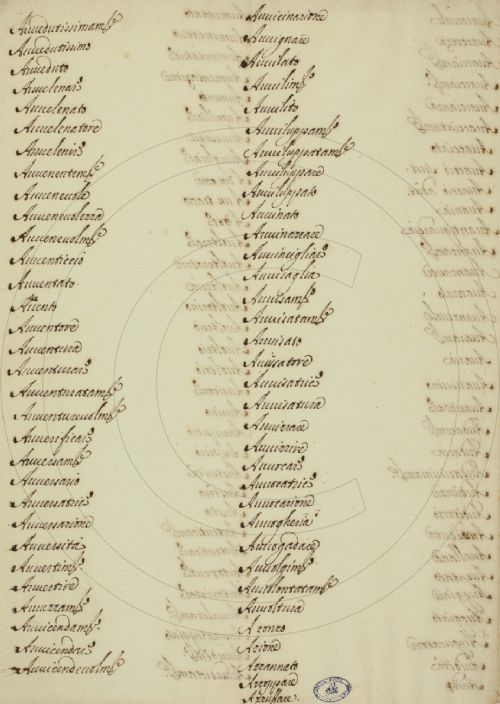 Avvedutissimamse
Avvedutissimo
Avveduto
Avvelenaro
Avvelenato
Avvelenatore
Avvelenire
Avvenentemse
Avvenevole
Avvenevolezza
Avvenevolmse
Avventiccio
Avventato
Avvento
Avventore
Avventura
Avventurare
Avventuratamse
Avventurevolmse
Avversificare
Avversamse
Avversario
Avversatrice
Avversazione
Avversità
Avvertimso
Avvertire
Avvezzamso
Avvicendamso
Avvicendare
Avvicendevolmse
Avvicinazione
Avvignare
Avvilato
Avvilimso
Avvilito
Avviluppamso
Avviluppatamse
Avviluppare
Avviluppato
Avvinato
Avvinazzare
Avvincigliare
Avvisaglia
Avvisamso
Avvisatamse
Avvisato
Avvisatore
Avvisatrice
Avvisatura
Avvivare
Avvizzire
Avvocare
Avvocatrice
Avvocazione
Avvogheria
Avvogadare
Avvolgimso
Avvolontatamse
Avvoltura
Azione
Azzannato
Azzoppare